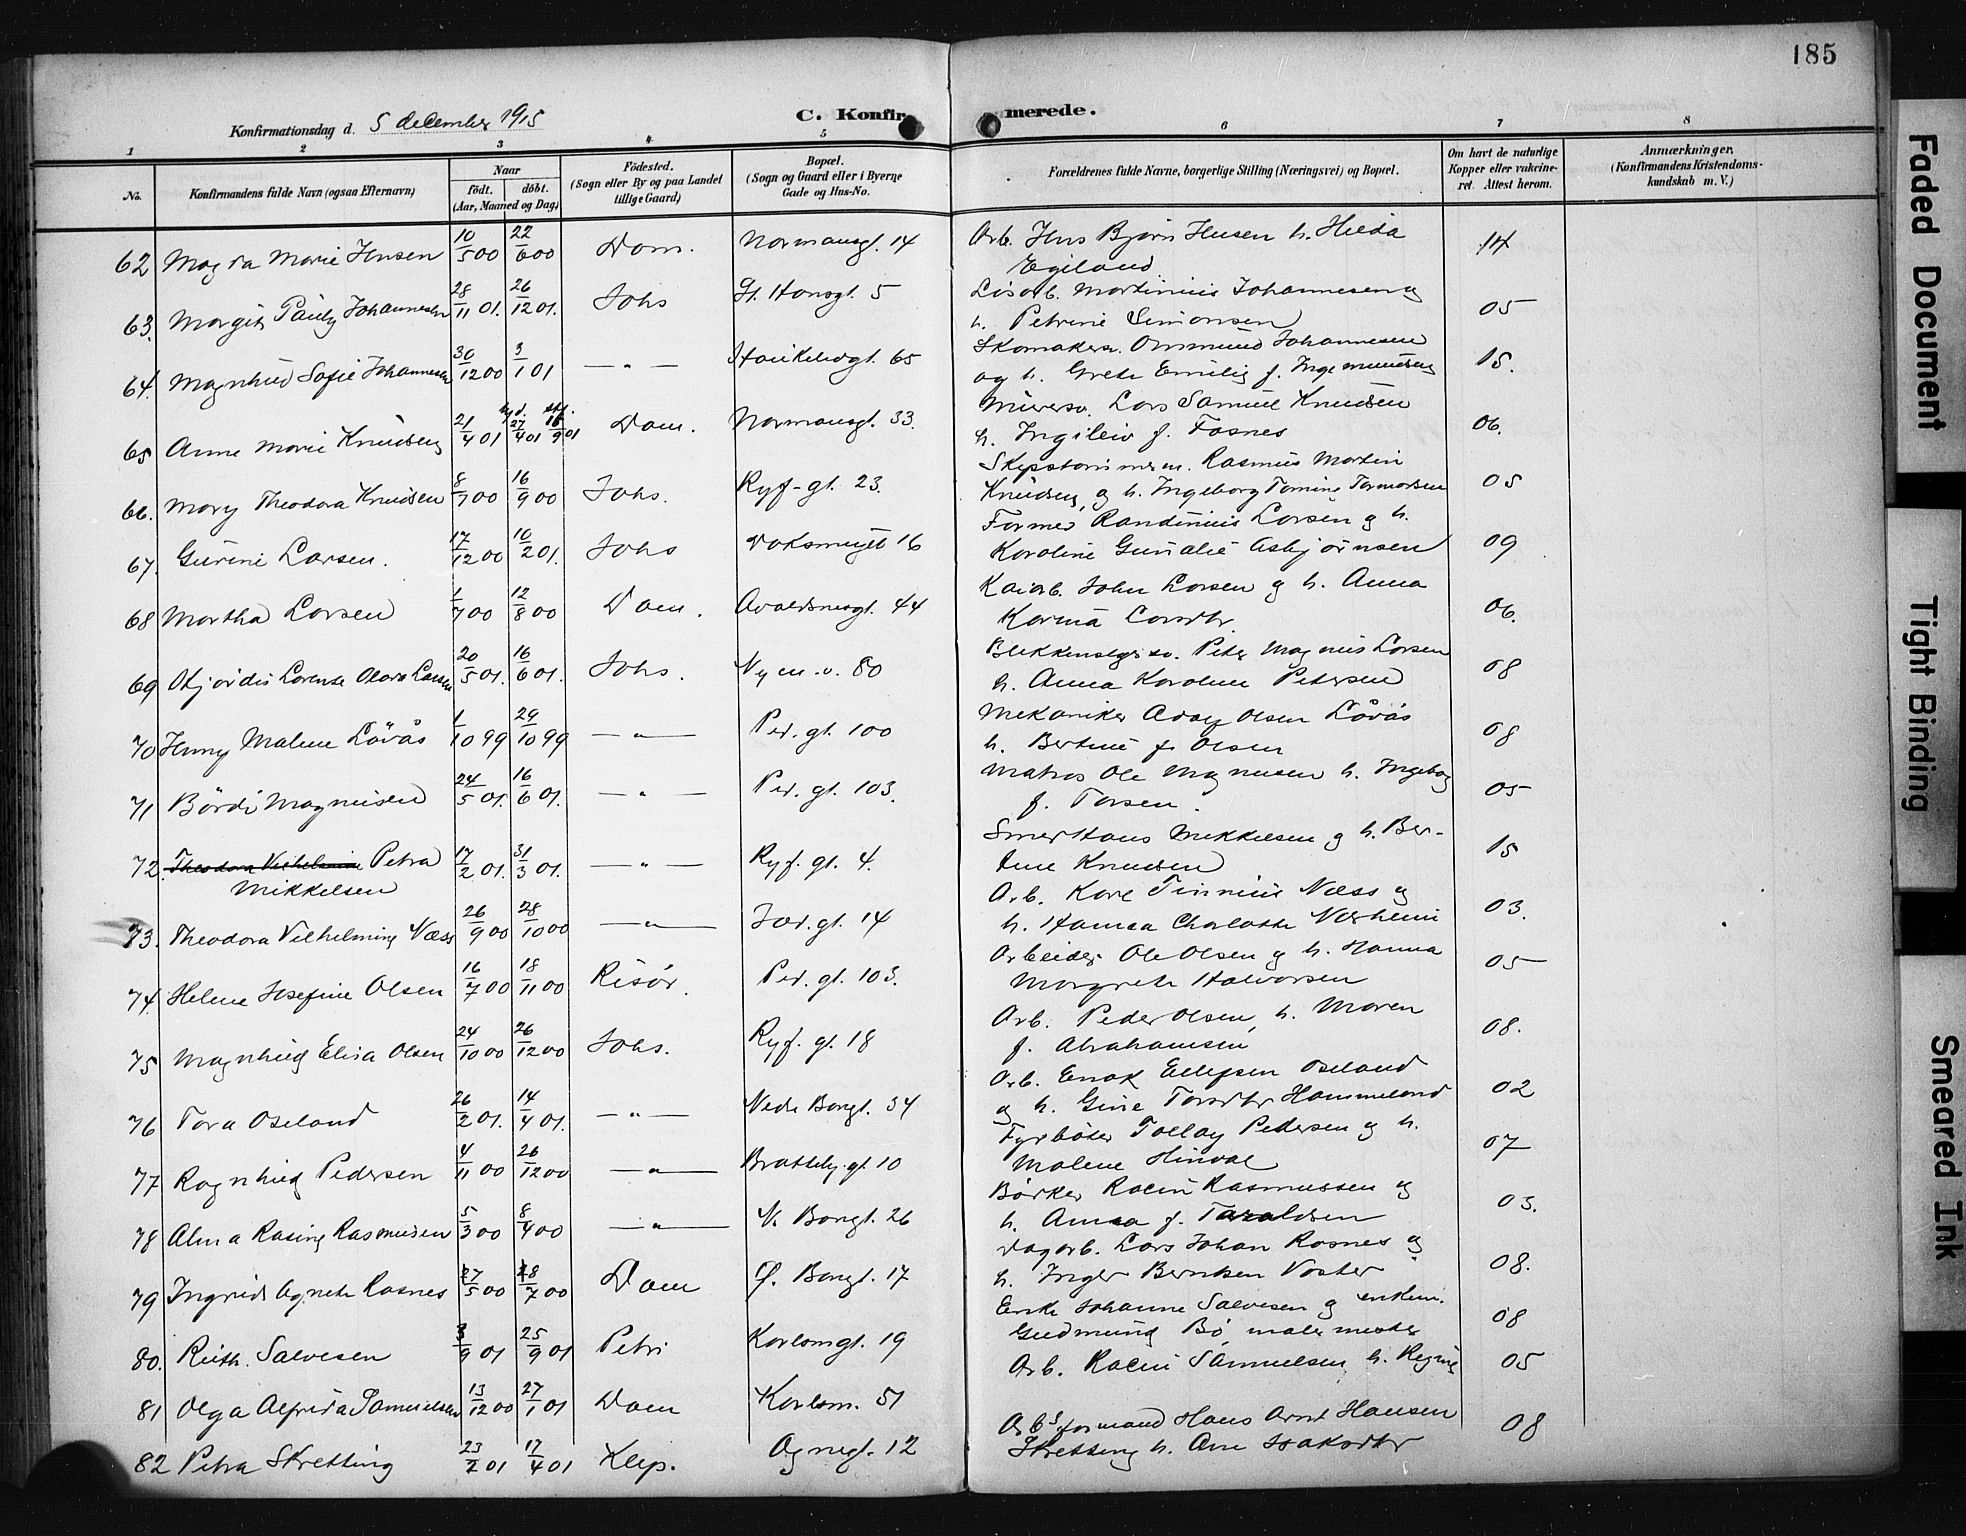 185
C. Konfirmerede.
Konfirmationsdag d. 5 december 1915
1 2 3 4 5 6 7 8
No. Konfirmandens fulde Navn (ogsaa Efternavn) Naar født. døbt. (Aar, Maaned og Dag) Födested. (Sogn eller By og paa Landet tillige Gaard) Bopæl. (Sogn og Gaard eller i Byerne Gade og Hus-No. Forældrenes fulde Navne, borgerlige Stilling (Næringsvei) og Bopæl. Om havt de naturlige Kopper eller vakcineret. Attest herom. Anmærkninger. (Konfirmandens Kristendomskundskab m. V.)
62 Magda Marie Jensen 10/5 00 22/6 00 Dom. Normansgt. 14 Arb. Jens Bjørn Jensen h. Hilda 14
Egiland
63. Margit Pauly Johannesen 28/11 01. 26/12 01. Johs St. Hansgt. 5 Løsarb. Martinius Johannesen og 05
h. Petrine Simonsen
64. Magnhild Sofie Johannesen 30/12 00 3/1 01 — " — Haukeligt. 65 Skomakersv. Ommund Johannesen 15.
og h. Grete Emilie f. Ingemundsen
65 Anne Marie Knudsen 21/4 01 27/4 01 16/9 01 Dom. Normansgt. 33. Murersv. Lars Samuel Knudsen 06.
h. Ingileiv f. Fosnes
66. Mary Theodora Knudsen 8/7 00 16/9 00 Johs. Ryf-gt. 23. Skipstømmerm. Rasmus Martin 05
Knudsen, og h. Ingeborg Tomine Tormodsen
67. Gurine Larsen. 17/12 00 10/2 01. Johs 16 Former Randinius Larsen g h. 09
Karoline Gunalie Asbjørnsen
68 Martha Larsen 1/7 00 12/8 00 Dom. Avaldsnesgt. 44 Kaiarb. John Larsen g h. Anna 06.
Korma Larsdtr.
69 Hjørdis Lorense Olava Larsen 20/5 01. 16/6 01. Johs. Nym.v. 80 Blikkenslgrsv. Peter Magnus Larsen 08
h. Anna Karoline Petersen
70 Jenny Malene Løvås 1/10 99 29/10 99 — " — Ped. gt. 100 Mekaniker Adsey Olsen Løvås 08
h. Bertine f. Olsen
71 Bördi Magnussen 24/5 01. 16/6 01. — " — Ped. gt. 103. Matros Ole Magnussen h. Ingeborg 05
f. Torsen.
72. Theodora Vilhelmine Petra 17/2 01. 31/3 01. — " — Ryf. gt. 4. Smed Hans Mikkelsen g h. Ber- 15
Mikkelsen tine Knudsen
73. Theodora Vilhelmine Næss 26/9 00 28/10 00 — " — Jæd. gt. 14 Arb. Karl Tinnius Næss og 03.
h. Hanna Charlotte Nærheim
74. Helene Josefine Olsen 16/7 00 18/11 00 Risör. Ped. gt. 103. Arbeider Ole Olsen g h. Hanna 05
Margrete Halvorsen
75 Magnhild Elisa Olsen 24/10 00 26/12 00 Johs. Ryf. gt. 18 Arb. Peder Olsen, h. Maren 08.
f. Abrahamsen
76 Tora Oseland 26/2 01. 14/4 01. — " — Nedre Bangt. 34 Arb. Enok Ellefsen Oseland 02
og h. Gine Tordtr Hammeland
77 Ragnhild Pedersen 4/11 00 26/12 00 — " — Brattebj. gt 10 Fyrbøter Tollag Pedersen g h. 07
Malene Hindal
78 Alma Rasine Rasmussen 5/3 00 8/4 00 — " — N. Bangt. 26 Bødker Racin Rasmussen og 03.
h. Anna f. Taraldsen
79 Ingrid Agnete Rosnes 27/5 00 18/7 00 Dom Ø. Bangt. 17 Dagarb. Lars Johan Rosnes og 08.
h. Inger Berntsen
80. Ruth Salvesen 3/9 01 25/9 01 Petri Karlsmgt. 19 Enke Johanne Salvesen g enkem. 08
Gudmund Bø, malermester
81 Olga Alfrida Samuelsen 13/12 00 27/1 01 Dom Karlsm. 51 Arb. Racin Samuelsen h. Regine 05
82 Petra Skretting 23/2 01 17/4 01 Klep. Agnegt. 12 Arbsformand Hans Arnt Hansen 08
Skretting h. Ane Isaksdtr
Faded Document
Tight Binding
Smeared Ink